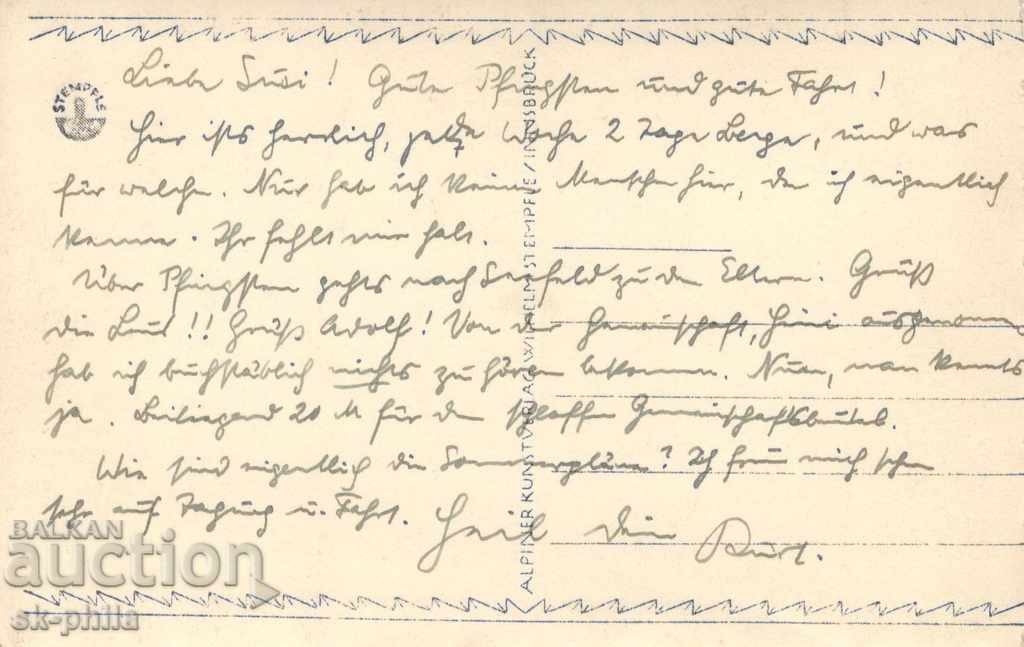 Liebe Susi! Gute Pfingsten und gute Fahrt!
Hier ists herrlich, jede Woche 2 Tage Berge, und was
für welche. Nur hab ich keine Menschen hier, den ich eigentlich
kenne. Ihr fehlt mir halt.
Über Pfingsten gehts nach Seefeld zu den Eltern. Grüß
die !! Grüß Adolf! Von der Gemeinschaft, Heini ausgenomm.
hab ich buchstäblich nichts zu hören bekommen. Nun, man kennts
ja. Beiliegend 20 M für den schlaffen Gemeinschaftsbeutel.
Wie sind eigentlich die Sommerpläne? Ich freu mich schon
sehr auf Tagung u. Fahrt. Heil Dein Kurt.
STEMPFLE
ALPINER KUNSTVERLAG WILHELM STEMPFLE / INNSBRUCK
BALKAN
auction
sk-phila